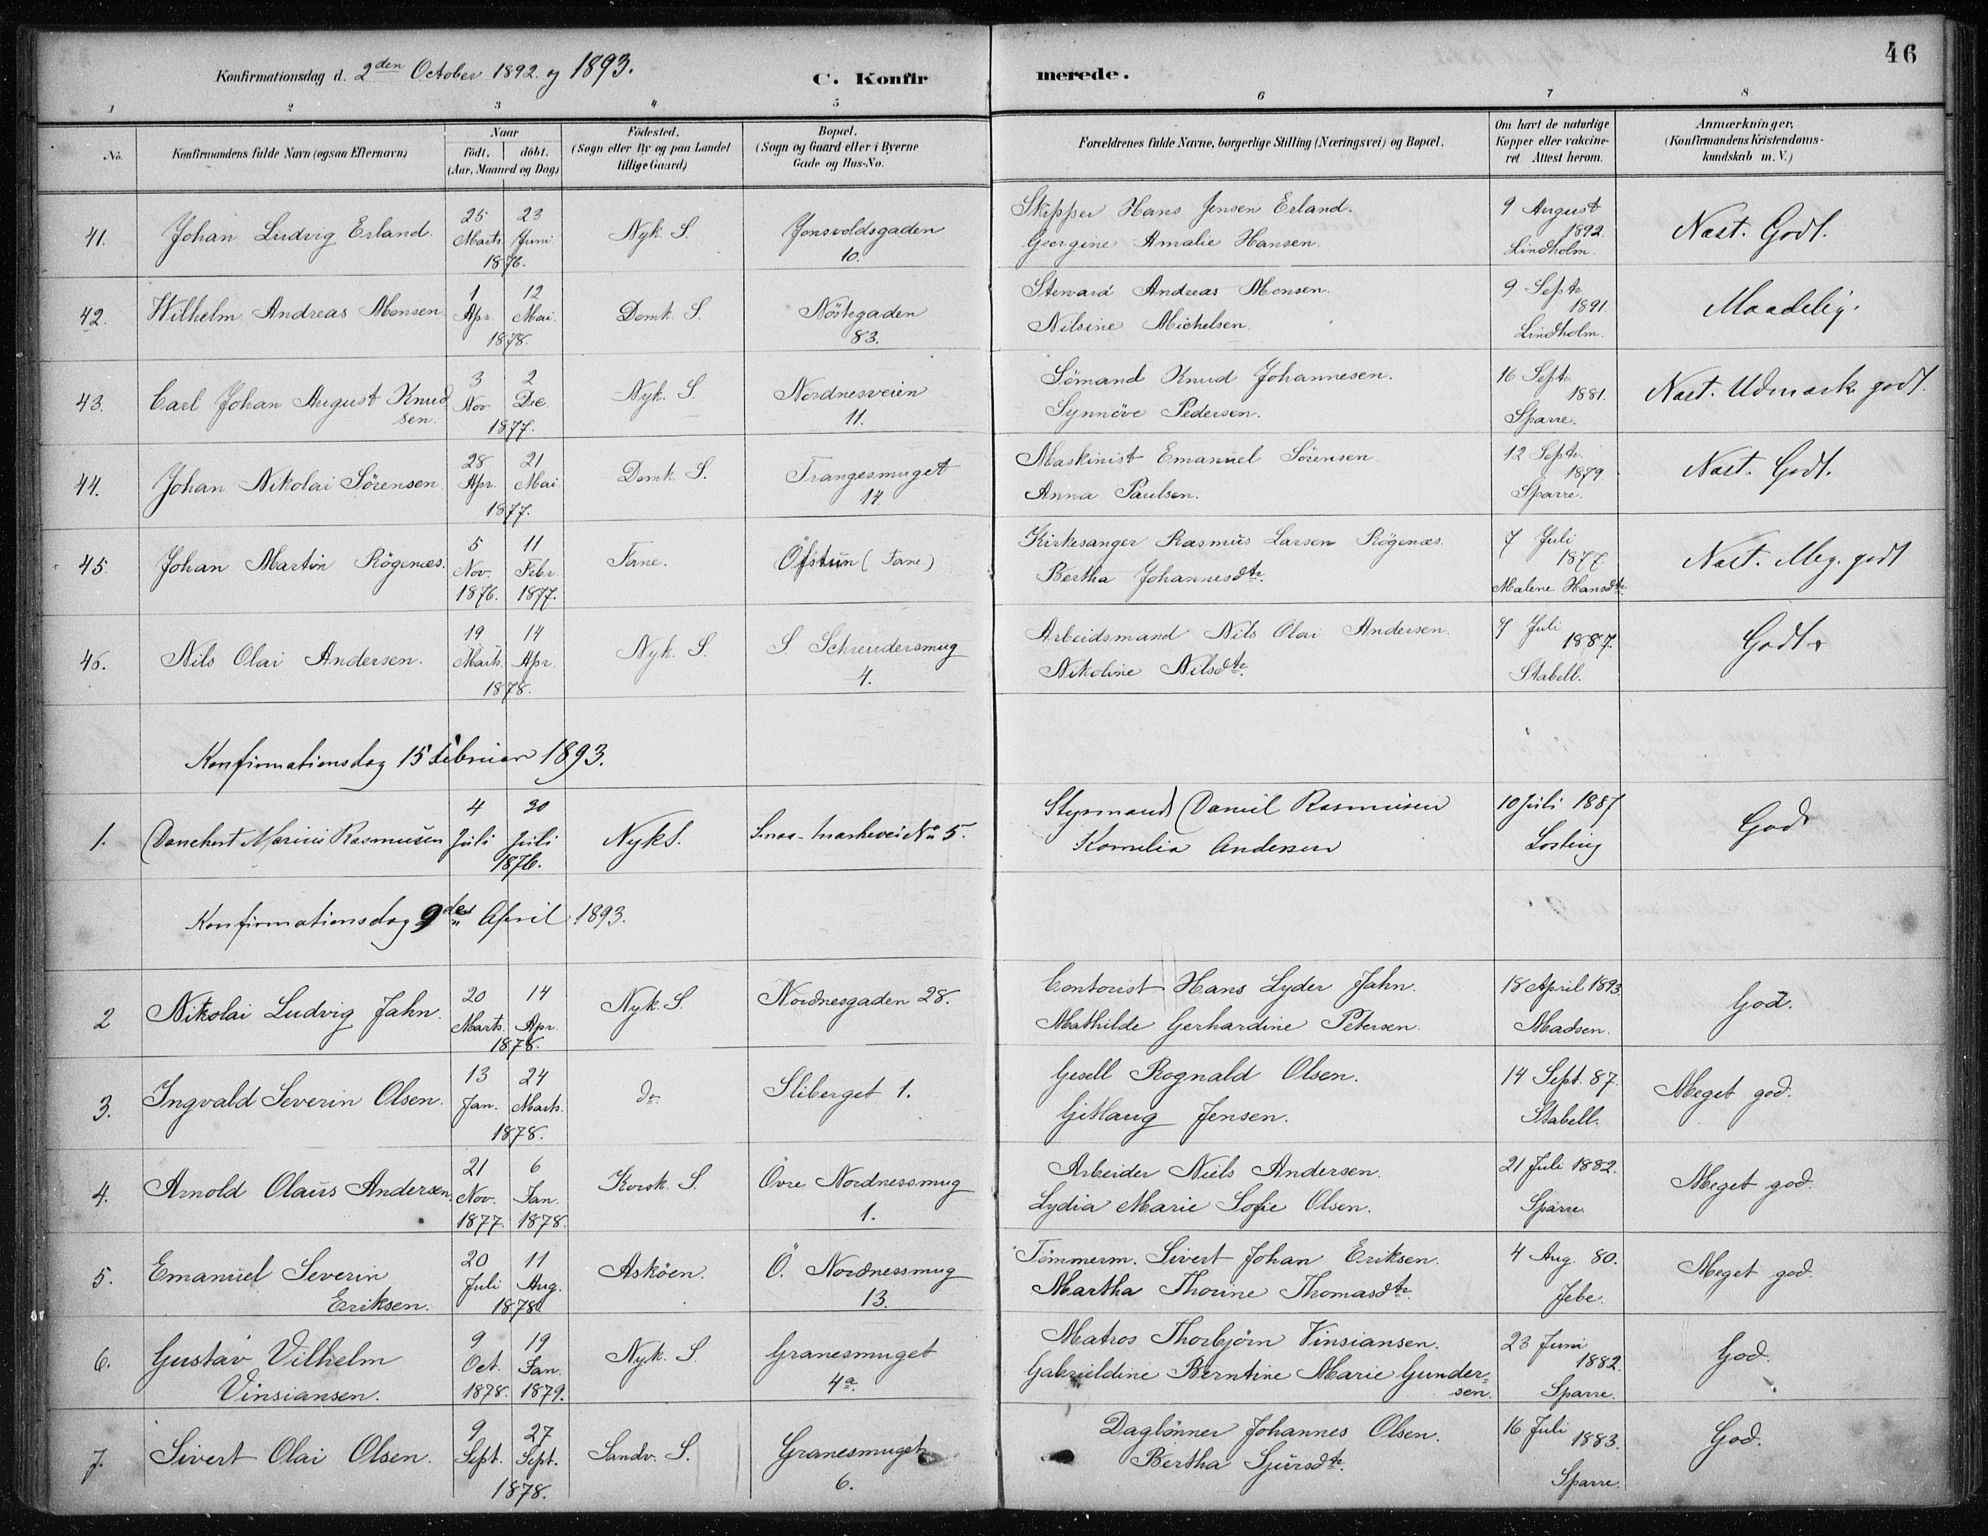 46
Konfirmationsdag d. 2den October 1892 og 1893.
C. Konfirmerede.
1 2 3 4 5 6 7 8
No.
Konfirmandens fulde Navn (ogsaa Efternavn)
Naar
födt. döbt.
(Aar, Maaned og Dag)
Födested.
(Sogn eller By og paa Landet
tillige Gaard)
Bopæl.
(Sogn og Gaard eller i Byerne
Gade og Hus-No.
Forældrenes fulde Navne, borgerlige Stilling (Næringsvei) og Bopæl.
Om havt de naturlige
Kopper eller vakcine-
ret. Attest herom.
Anmærkninger.
(Konfirmandens Kristendoms-
kundskab m. V.)
41. Johan Ludvig Erland.
25 Marts 23 Juni 1876.
Nyk. S.
Jonsvoldsgaden
10.
Skipper Hans Jensen Erland.
Georgine Amalie Hansen.
9 August
1892.
Lindholm.
Næst. Godt.
42. Wilhelm Andreas Monsen
1 Apr. 12 Mai. 1878.
Domk. S.
Nöstegaden
83.
Steward Andreas Monsen.
Nilsine Michelsen.
9 Septr
1891.
Lindholm.
Maadelig.
43. Carl Johan August Knud
sen.
3 Nov. 2 Dec. 1877.
Nyk. S.
Nordnesveien
11.
Sömand Knud Johannesen.
Synnöve Pedersen.
16 Septr
1881.
Sparre.
Næst. Udmærk. godt.
44. Johan Nikolai Sörensen
28 Apr. 21 Mai 1877.
Domk. S.
Trangesmuget
14.
Maskinist Emanuel Sörensen
Anna Paulsen.
12 Septr
1879.
Sparre.
Næst. Godt.
45. Johan Martin Rögenæs.
5 Nov. 1876. 11 Febr 1877.
Fane.
Öfstun (Fane)
Kirkesanger Rasmus Larsen Rögenæs.
Bertha Johannesdtr.
7 Juli
1877.
Malene Hansdtr.
Næst. Meg. godt
46. Nils Olai Andersen.
19 Marts. 14 Apr. 1878.
Nyk. S.
S. Schreudersmug
4.
Arbeidsmand Nils Olai Andersen.
Nikoline Nilsdtr.
7 Juli
1887.
Stabell.
Godt.
Konfirmationsdag 15 Februar 1893.
1. Danchert Marius Rasmussen
4 Juli 30 Juli 1876.
Nyk S.
No 5.
Styrmand Daniel Rasmussen
Kornelia Andersen
10 Juli 1887
Losting
God
Konfirmationsdag 9de April 1893.
2 Nikolai Ludvig Jahn.
20 Marts. 14 Apr. 1878.
Nyk. S.
Nordnesgaden 28.
Contorist Hans Lyder Jahn.
Mathilde Gerhardine Petersen.
18 April 1893.
Madsen.
God.
3. Ingvald Severin Olsen.
13 Jan. 24 Marts. 1878.
do
Sliberget 1.
Gesell Rognald Olsen.
Gitlaug Jensen.
14 Sept. 87.
Stabell.
Meget god.
4. Arnold Olaus Andersen.
21 Nov. 1877. 6 Jan. 1878.
Korsk. S.
Övre Nordnessmug
1.
Arbeider Niels Andersen.
Lydia Marie Sofie Olsen.
21 Juli 1882.
Sparre.
Meget god.
5. Emanuel Severin
Eriksen.
20 Juli 11 Aug. 1878.
Asköen.
Ö. Nordnessmug
13.
Tömmerm. Sivert Johan Eriksen.
Martha Thorine Thomasdtr.
4 Aug. 80.
Jebe.
Meget god.
6. Gustav Vilhelm
Vinsiansen.
9 Oct. 1878. 19 Jan. 1879.
Nyk. S.
Granesmuget
4a.
Matros Thorbjörn Vinsiansen.
Gabrieldine Berntine Marie Gunder-
sen.
23 Juni
1882.
Sparre.
God.
7. Sivert Olai Olsen.
9 Sept. 27 Sept. 1878.
Sandv. S.
Granesmuget
6.
Daglönner Johannes Olsen.
Bertha Sjursdtr.
16 Juli
1883.
Sparre.
God.